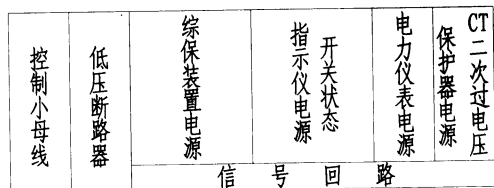 控制小母线
低压断路器
综保装置电源
开关状态
指示仪电源
电力仪表电源
CT二次过电压
保护器电源
信号回路